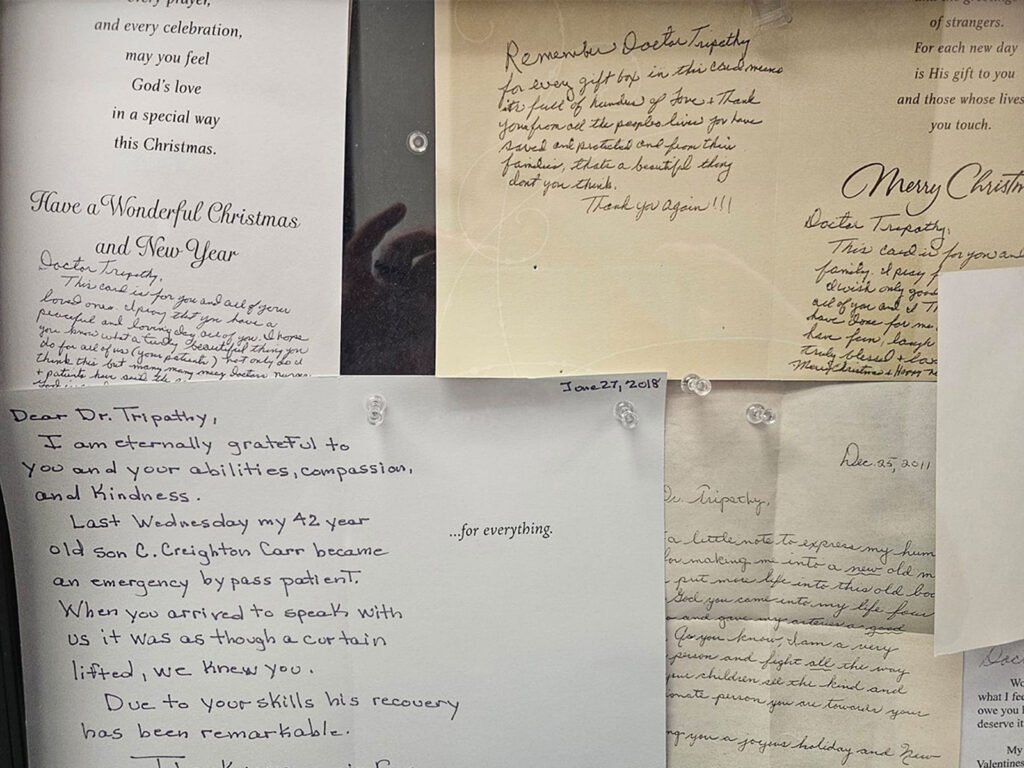 every prayer,
and every celebration,
may you feel
God's love
in a special way
this Christmas.
Have a Wonderful Christmas
and New Year
Doctor Tripathy,
This card is for you and all of your
loved ones. I pray that you have a
peaceful and loving day all of you. I hope
you know what a truly beautiful thing you
do for all of us (your patients) not only do I
think this but many many many doctors nurses
+ patients have said the
Remember Doctor Tripathy
for every gift box in this card means
its full of hundes of Love + Thank
yous from all the peoples lives you have
saved and protected and from their
families, thats a beautiful thing
dont you think.
Thank you again!!!
of strangers.
For each new day
is His gift to you
and those whose lives
you touch.
Merry Christm
Doctor Tripathy,
This card is for you and
family. I pray
I wish only good
all of you and I
have done for me.
have fun, laugh
truly blessed +
Merry Christmas + Happy
June 27, 2018
Dear Dr. Tripathy,
I am eternally grateful to
you and your abilities, compassion,
and kindness.
Last Wednesday my 42 year
old son C. Creighton Carr became
an emergency by pass patient.
When you arrived to speak with
us it was as though a curtain
lifted, we knew you.
Due to your skills his recovery
has been remarkable.
...for everything.
Dec. 25, 2011
Dr. Tripathy,
a little note to express my hum
for making me into a new old m
put more life into this old bod
God you came into my life four
and gave my arteries a good
As you know, I am a very
person and fight all the way
your children see the kind and
onate person you are towards your
ng you a joyous holiday and New
Doc
Wo
what I fee
owe you
deserve it
My
Valentines